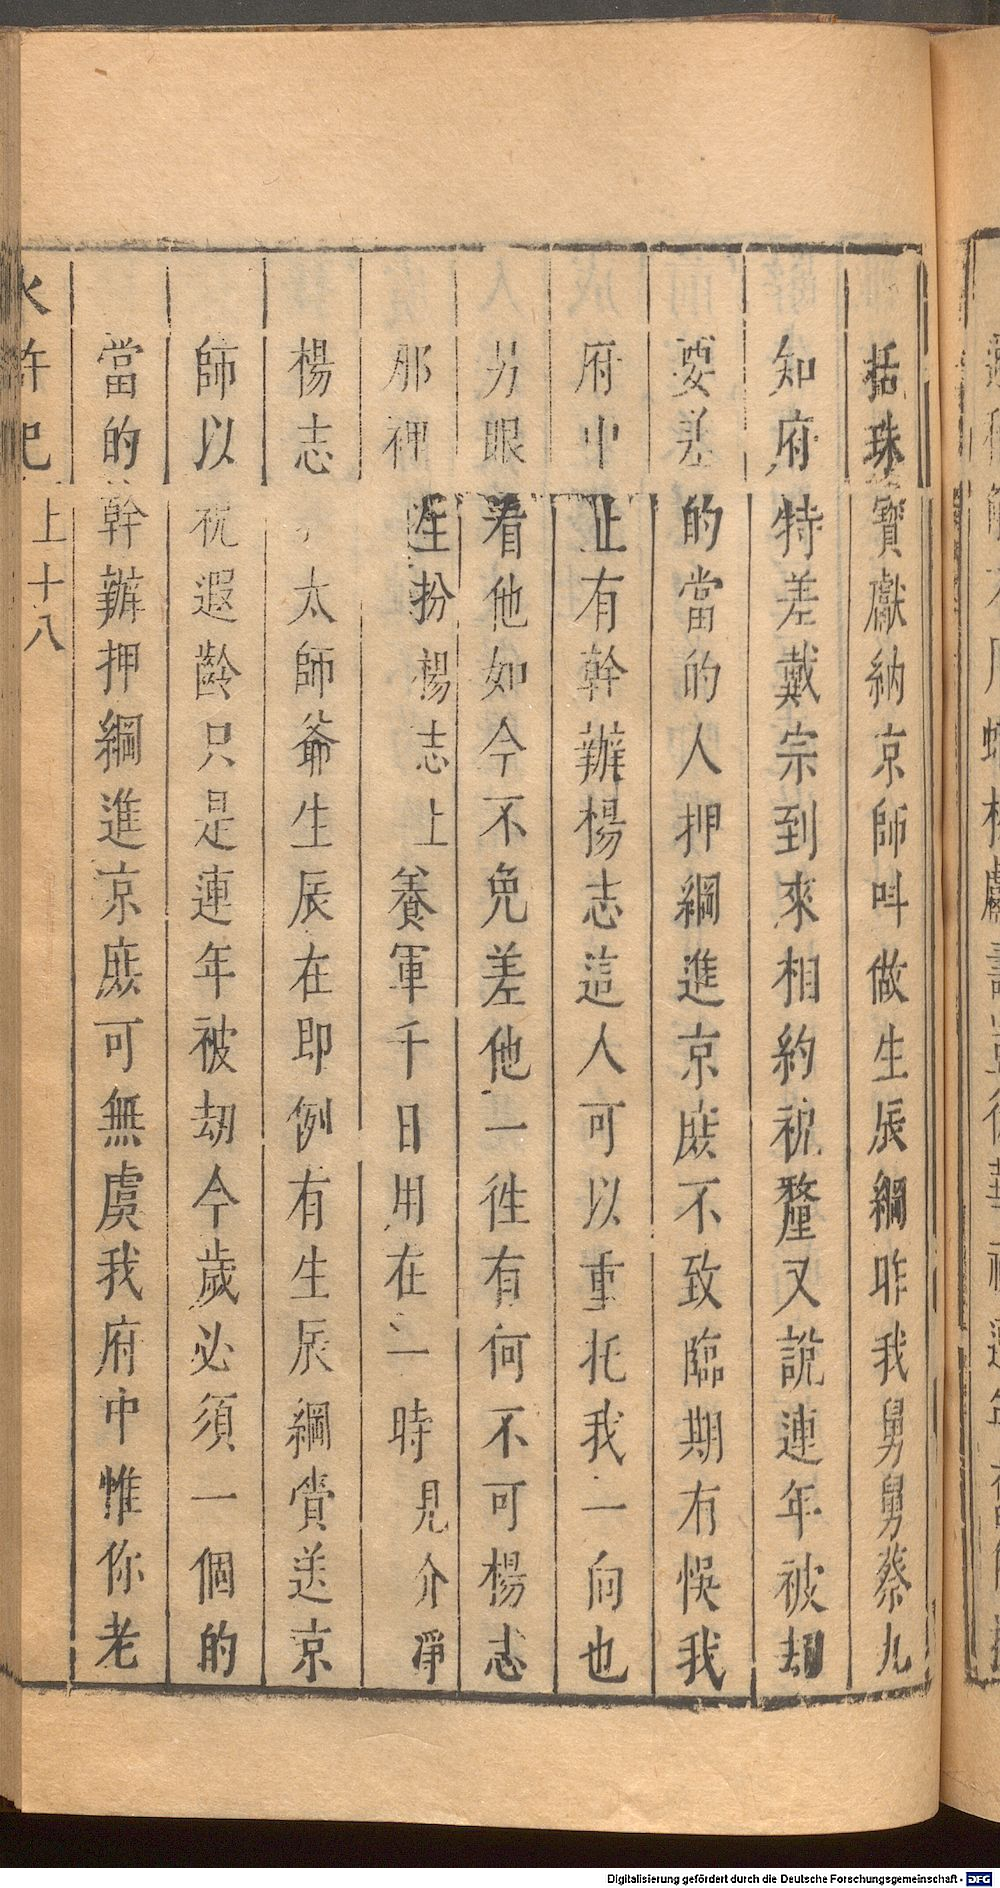 括珠寶獻納京師呌做生辰綱昨我舅舅蔡九
知府特差戴宗到來相約祝釐又說連年被刼
要差的當的人押綱進京庶不致臨期有悞我
府中止有幹辦楊志這人可以重托我一向也
另眼看他如今不免差他一徃有何不可楊志
那裡生扮楊志上養軍千日用在一時見介淨
楊志太師爺生辰在即例有生辰綱賫送京
師以祝遐齡只是連年被刼今歲必須一個的
當的幹辦押綱進京庶可無虞我府中惟你老
水許記上十八
Digitalisierung gefördert durch die Deutsche Forschungsgemeinschaft - DFG